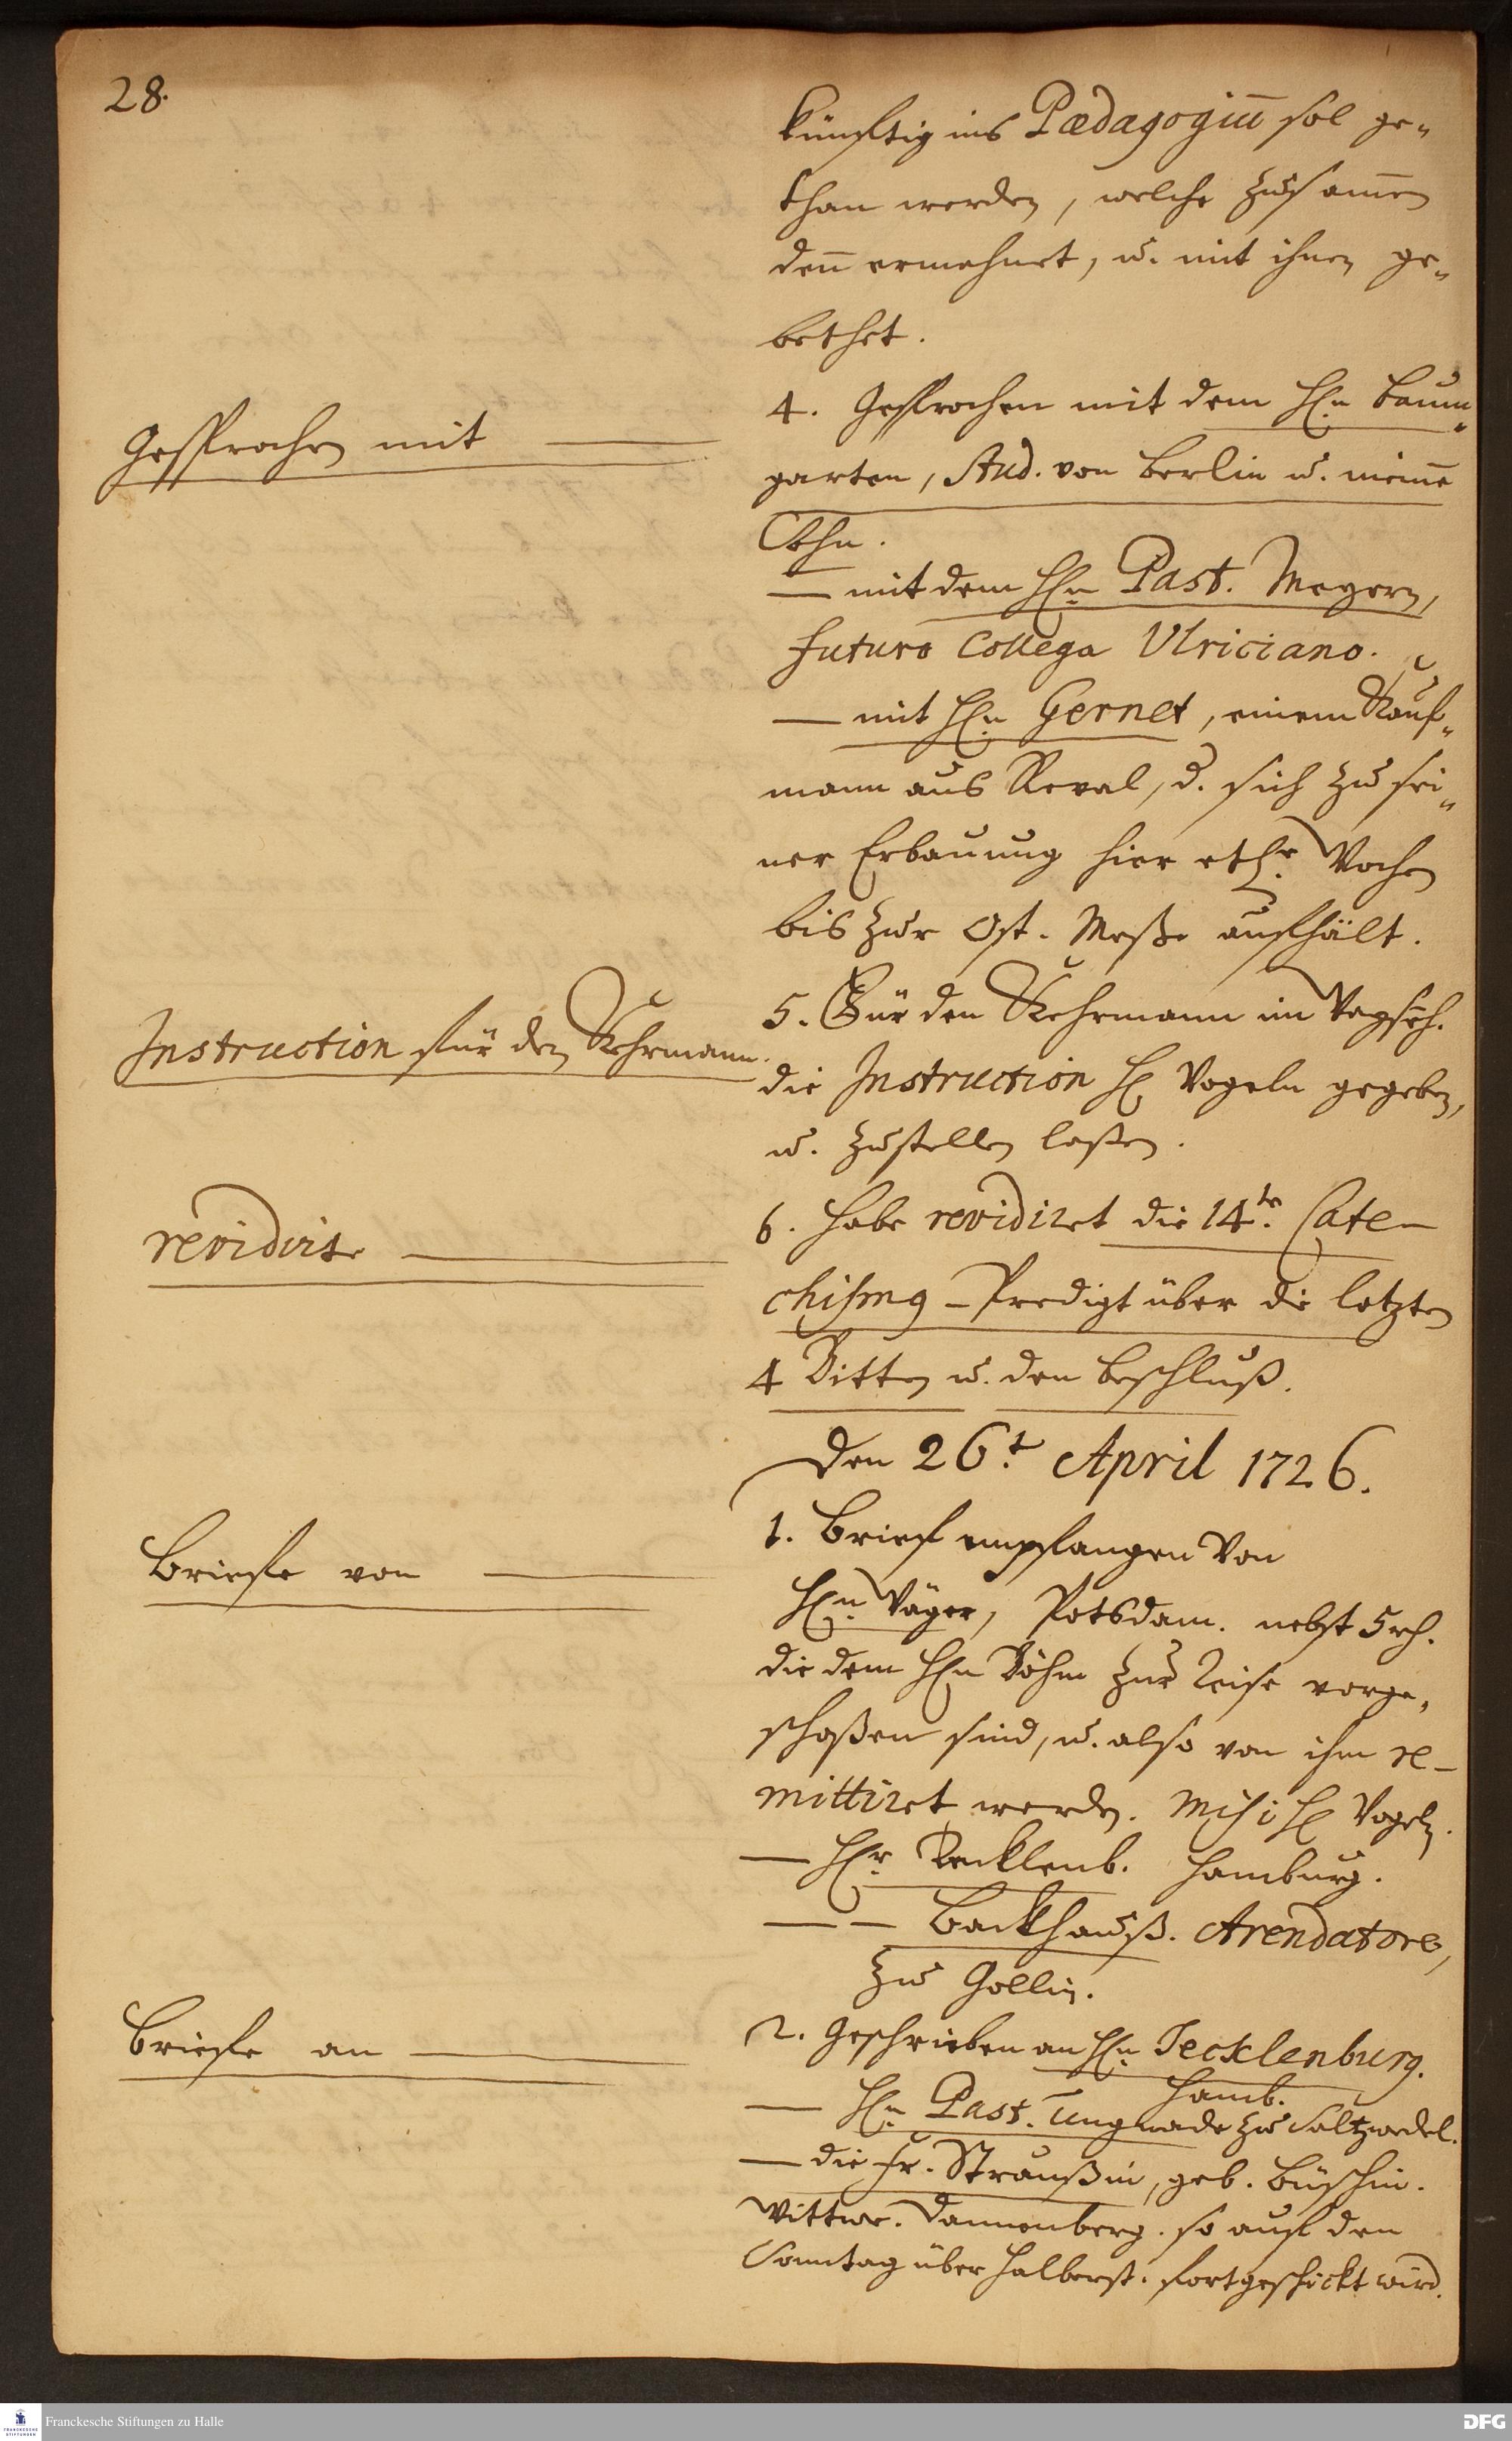 28.
künfftig ins Pædagogiū sol ge-
than werden, welche zusam̄en
den̄ ermahnet, u. mit ihnen ge-
bethet.
Gesprochen mit
4. Gesprochen mit dem Hn Baum-
garten, Stud. von Berlin u.
Sohn.
— mit dem Hn Past. Meyern,
futuro Collega Ulriciano.
— mit Hn Gernet, einem Kauf-
mann aus Reval, d. sich zu sei-
ner Erbauung hier etl. Wochen
bis zur Ost. Meße aufhält.
Instruction für den Kehrmann.
5. Für den Kehrmann im Waysenh.
die Instruction H Vogeln gegeben,
u. zustellen laßen.
revidirte
6. Habe revidiret die 14te. Cate-
chismq – Predigt über die letzten
4 Bitten u. den Beschluß.
Den 26.t April 1726.
Briefe von
1. Brief empfangen von
Hn Jäger, Potsdam. nebst 5 rh.
die dem Hn Böhm zur Reise vorge-
schoßen sind, u. also von ihm re-
mittiret werden. Misi H Vogeln.
— Hr Tecklenb. Hamburg.
— — Backhauß. Arendatore,
zu Gollin.
Briefe an
2. Geschrieben an Hn Tecklenburg.
Hamb.
— Hn Past. Ungnade zu Saltzwedel.
— die Fr. Straußin, geb. Büschin.
Wittwe. Dannenberg. so auf den
Sonntag über Halberst. fortgeschickt wird.
Franckesche Stiftungen zu Halle
DFG